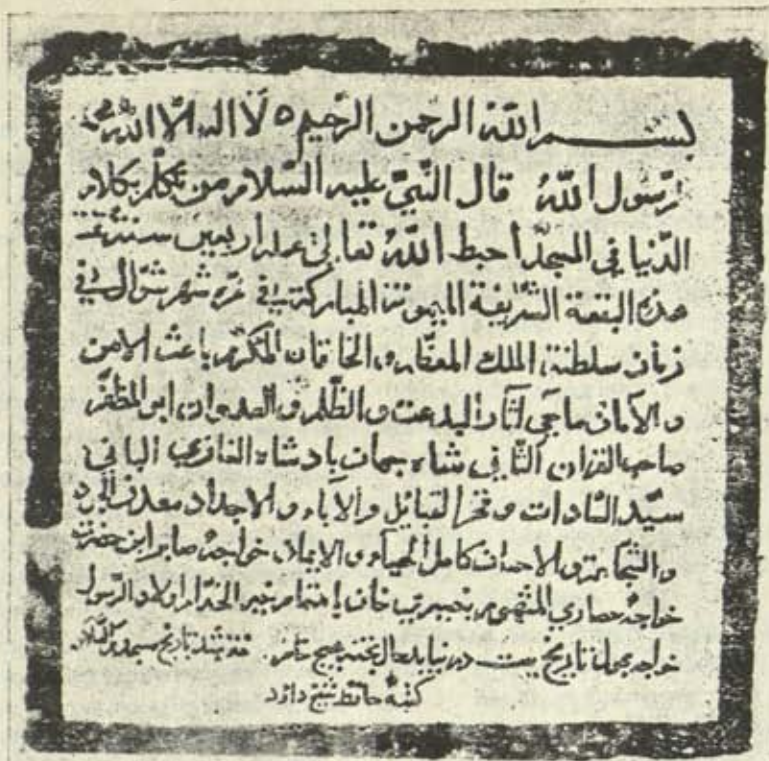 بسم الله الرحمن الرحيم ٥ لا اله الا الله محمد
رسول الله قال النبي عليه السلام من تكلم بكلام
الدنيا في المسجد احبط الله تعالى عمله اربعين سنة
هذه البقعة الشريفة الميمونة المباركة في غره شهر شوال في
زمان سلطنة الملك المعظم و الخاقان المكرم باعث الامن
و الامان ماحي آثار البدعت و الظلم و العدوان ابو المظفر
صاحب القران الثاني شاه جهان بادشاه الغازي الباني
سيد السادات و فخر القبايل و الآباء و الاجداد معدن الجود
و الشجاعة و الاحسان كامل الحياء و الايمان خواجه صابر ابن حضرت
خواجه حصاري خان اولاد الرسول
خواجه تاريخ بيت تاريخ
كتبه حافظ شيخ داؤد